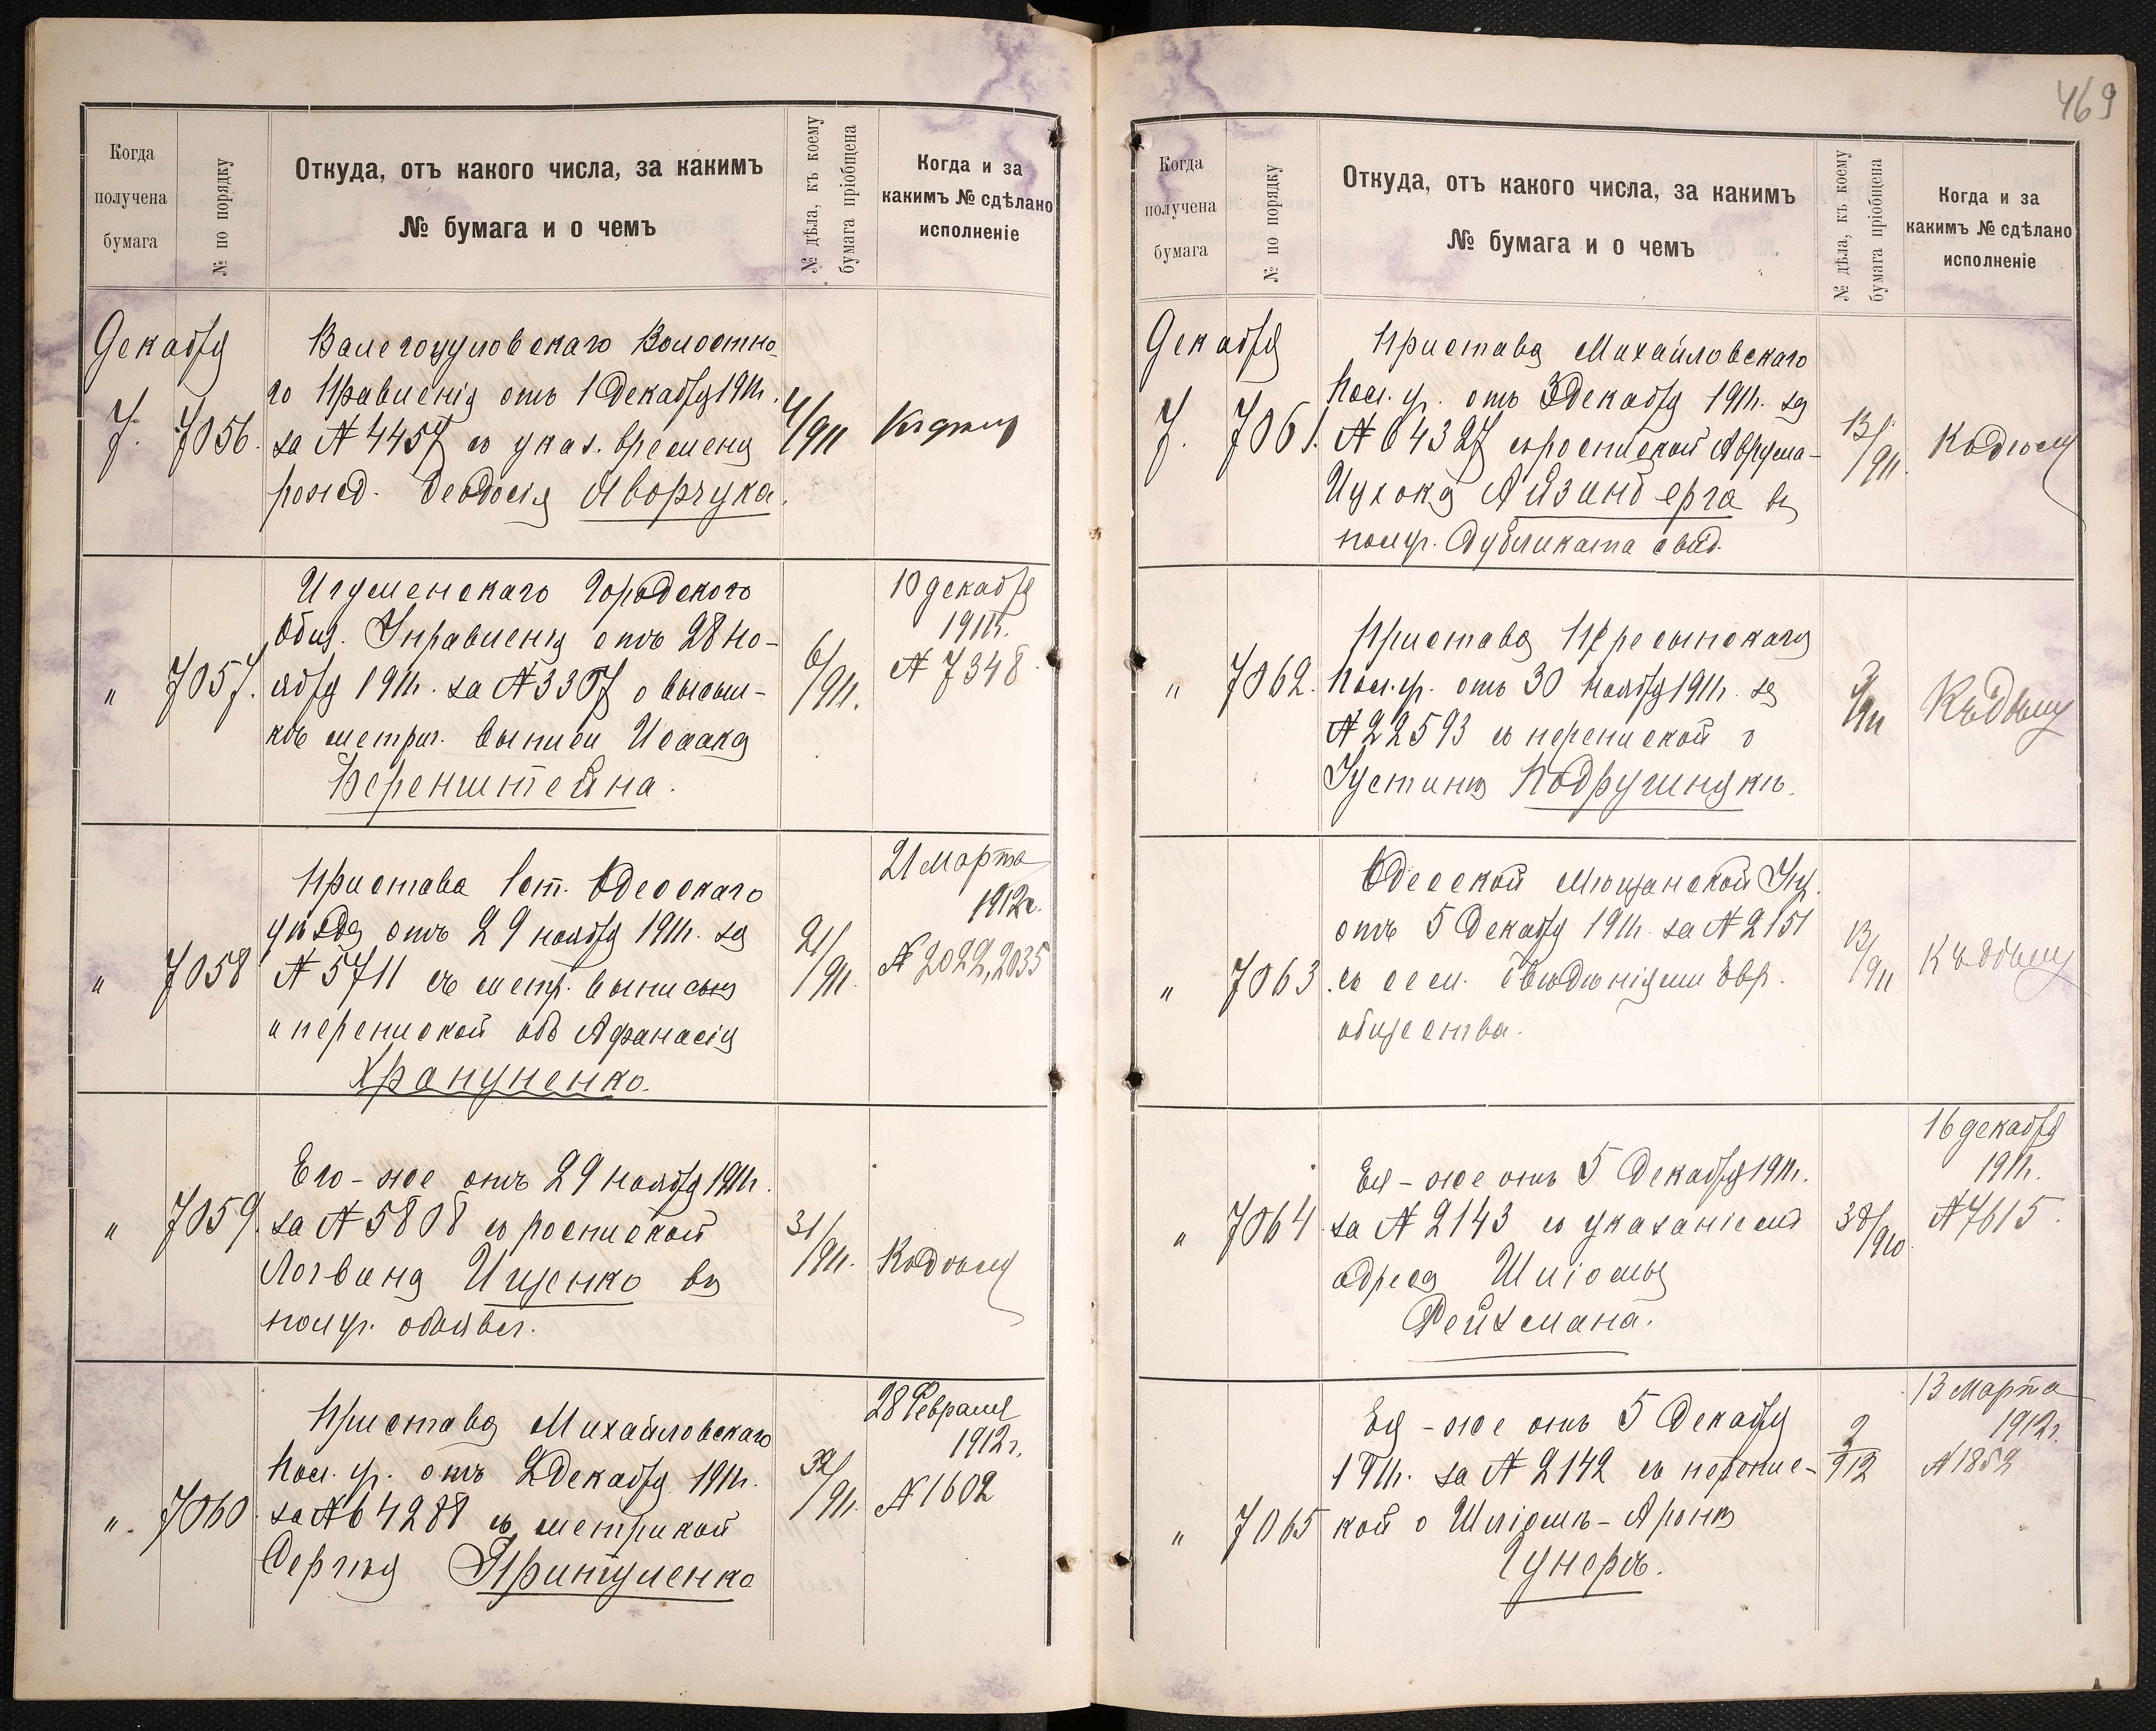 469
Когда
получена
бумага
№ по порядку
Откуда, отъ какого числа, за какимъ
№ бумага и о чемъ
№ дѣла, къ коему
бумага пріобщена
Когда и за
какимъ № сдѣлано
исполненіе
Декабря
7.
7056.
Валегоцуловскаго Волостно-
го Правленія отъ 1 Декабря 1911г.
за № 4457 съ указ. времени
рожд. Феодосія Яворчука.
4/911
Къ дѣлу
"
7057.
Игуменскаго Городского
Общ. Управленія отъ 28 Но-
ября 1911г. за № 3307 о высыл-
кѣ метрич. выписи Исаака
Беренштейна.
6/911.
10 декабря
1911г.
№ 7348.
"
7058
Пристава 1 ст. Одесскаго
уѣзда отъ 29 ноября 1911г. за
№ 5711 съ метр. выписью
и перепиской объ Афанасіи
Храпуненко.
21/911.
21 Марта
1912г.
№ 2022, 2035
"
7059.
Его-же отъ 29 ноября 1911г.
за № 5808 съ роспиской
Логвина Ищенко въ
получ. объявл.
31/911.
Къ дѣлу
".
7060
Пристава Михайловскаго
пол. уч. отъ 2 Декабря 1911г.
за № 64288 съ метрикой
Сергѣя Притуленко
32/911.
28 Февраля
1912г.
№ 1602
Когда
получена
бумага
№ по порядку
Откуда, отъ какого числа, за какимъ
№ бумага и о чемъ
№ дѣла, къ коему
бумага пріобщена
Когда и за
какимъ № сдѣлано
исполненіе
Декабря
7.
7061.
Пристава Михайловскаго
пол. уч. отъ 3 Декабря 1911г. за
№ 64327 съ роспиской Аврума-
Ицхока Айзинберга въ
получ. дубликата свид.
13/911.
Къ дѣлу
"
7062.
Пристава Пересыпскаго
пол. уч. отъ 30 Ноября 1911г. за
№ 22593 съ перепиской о
Густинѣ Подручинякъ.
9/911
Къ дѣлу
"
7063.
Одесской Мѣщанской Упр.
отъ 5 Декабря 1911г. за № 2151
съ сем. свѣдѣніями Евр.
общества.
13/911
Къ дѣлу
"
7064
Ея-же отъ 5 Декабря 1911г.
за № 2143 съ указаніемъ
адреса Шліомы
Рейхмана.
38/910
16 декабря
1911г.
№ 7615.
"
7065
Ея-же отъ 5 Декабря
1911г. за № 2142 съ перепис-
кой о Шліомѣ-Аронѣ
Гунеръ.
2/912
13 Марта
1912г.
№ 1852